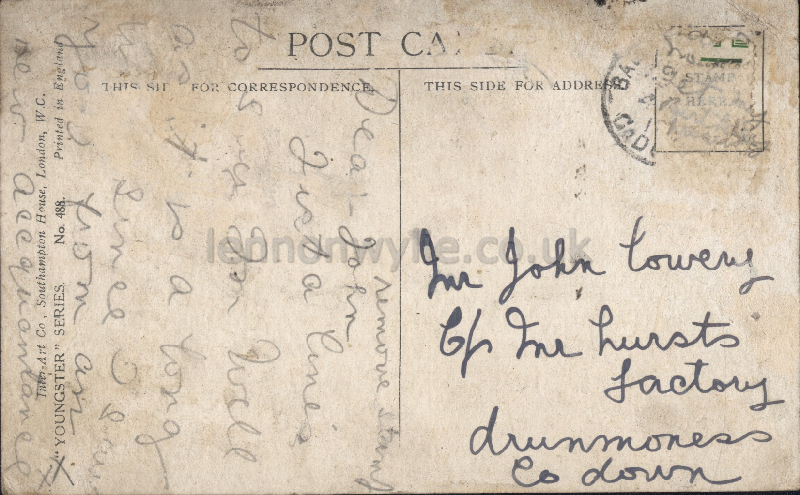 POST CA
THIS SI FOR CORRESPONDENCE.
THIS SIDE FOR ADDRESS
STAMP
HERE
BAL
CO. DO
Inter-Art Co., Southampton House, London, W.C.
"YOUNGSTER" SERIES. No. 488. Printed in England
remove stamp
Dear John
Just a line
to
as it is a long
since I
you from
new acequantance
Mr John Lowery
C/o Mr Hursts
factory
drunmoness
Co down
lennonwylie.co.uk